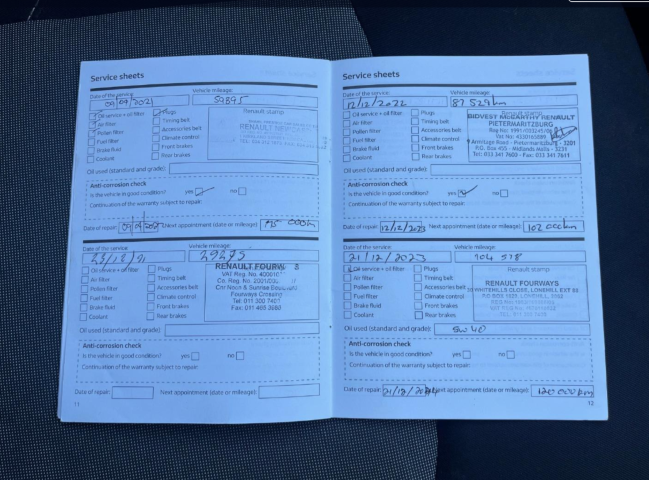 Service sheets
Date of the service:
Vehicle mileage:
09/09/2021
59895
Oil service + oil filter
Plugs
Renault stamp
Air filter
Timing belt
Pollen filter
Accessories belt
RENAULT
Fuel filter
Climate control
Brake fluid
Front brakes
Coolant
Rear brakes
Oil used (standard and grade)
Anti-corrosion check
Is the vehicle in good condition? yes no
Continuation of the warranty subject to repair:
Date of repair: 09/09/2021 Next appointment (date or mileage):
Date of the service:
Vehicle mileage:
23/12/21
Oil service + oil filter
Plugs
RENAULT FOURW S
Air filter
Timing belt
VAT Reg. No.
Pollen filter
Accessories belt
Co. Reg. No.
Fuel filter
Climate control
Cnr Nissh & Sunrise
Brake fluid
Front brakes
Fourways Crossing
Coolant
Rear brakes
Tel: 011 300 7401
Fax: 011 465 3680
Oil used (standard and grade):
Anti-corrosion check
Is the vehicle in good condition? yes no
Continuation of the warranty subject to repair:
Date of repair: Next appointment (date or mileage):
11
Service sheets
Date of the service:
Vehicle mileage:
12/12/2022
87 529km
Oil service + oil filter
Plugs
Renault stamp
Air filter
Timing belt
BIDVEST McCARTHY RENAULT
PIETERMARITZBURG
Pollen filter
Accessories belt
Fuel filter
Climate control
Brake fluid
Front brakes
Armitage Road - Pietermaritzburg - 3201
Coolant
Rear brakes
P.O. Box 455 - Midlands Mall - 3231
Tel: 033 341 7600 - Fax: 033 341 7611
Oil used (standard and grade)
Anti-corrosion check
Is the vehicle in good condition? yes no
Continuation of the warranty subject to repair:
Date of repair: 12/12/2023 Next appointment (date or mileage): 102 000km
Date of the service:
Vehicle mileage:
21/12/2023
104 578
Oil service + oil filter
Plugs
Renault stamp
Air filter
Timing belt
RENAULT FOURWAYS
Pollen filter
Accessories belt
Fuel filter
Climate control
Brake fluid
Front brakes
Coolant
Rear brakes
Oil used (standard and grade): 5w 40
Anti-corrosion check
Is the vehicle in good condition? yes no
Continuation of the warranty subject to repair:
Date of repair: Next appointment (date or mileage): 120 000 km
12